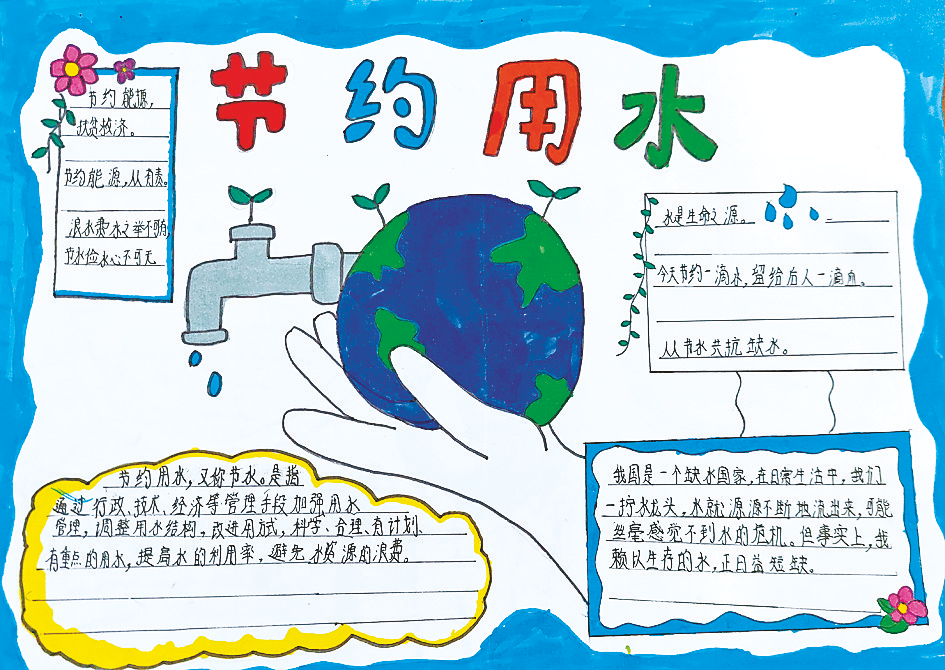 节约用水
节约能源,
扶贫救济。
节约能源,从有责。
浪水费水之举不可有
节水俭水心不可无
水是生命之源。
今天节约一滴水,留给后人一滴血。
从节水共抗缺水。
节约用水,又称节水。是指
通过行政、技术、经济等管理手段加强用水
管理,调整用水结构,改进用方式,科学、合理、有计划、
有重点的用水,提高水的利用率,避免水资源的浪费。
我国是一个缺水国家,在日常生活中,我们
一拧水龙头,水就源源不断地流出来,可能
丝毫感觉不到水的危机。但事实上,我
赖以生存的水,正日益短缺。